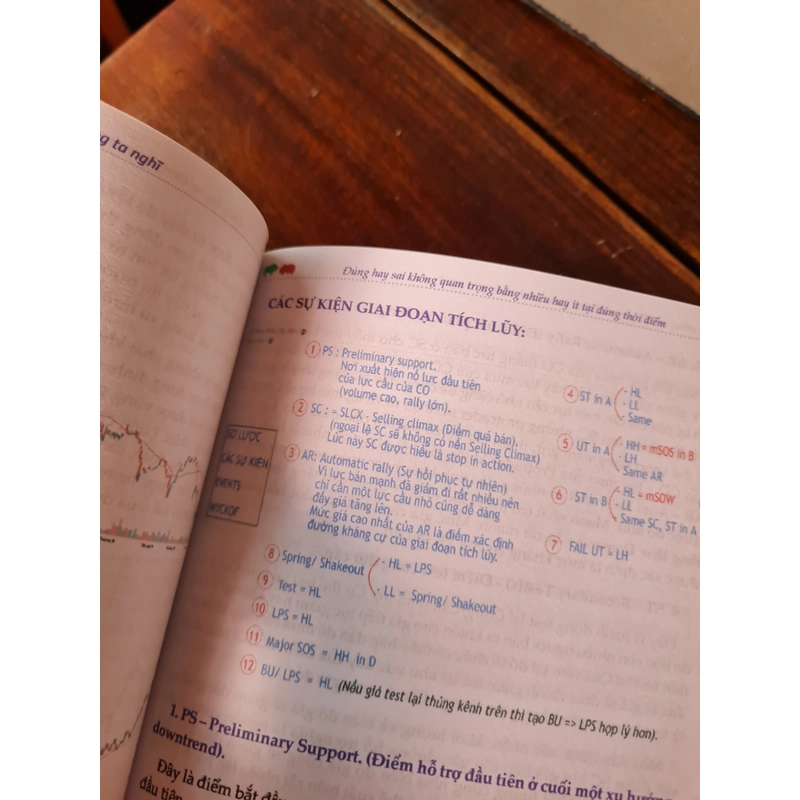 g ta nghĩ
Đúng hay sai không quan trọng bằng nhiều hay ít tại đúng thời điểm
CÁC SỰ KIỆN GIAI ĐOẠN TÍCH LŨY:
SƠ LƯỢC
CÁC SỰ KIỆN
EVENTS
WYCKOF
1 PS : Preliminary support.
Nơi xuất hiện nổ lực đầu tiên
của lực cầu của CO
(volume cao, rally lớn).
2 SC : = SLCX - Selling climax (Điểm quá bán).
(ngoại lệ SC sẽ không có nến Selling Climax)
Lúc này SC được hiểu là stop in action.
3 AR: Automatic rally (Sự hồi phục tự nhiên)
Vì lực bán mạnh đã giảm đi rất nhiều nên
chỉ cần một lực cầu nhỏ cũng dễ dàng
đẩy giá tăng lên.
Mức giá cao nhất của AR là điểm xác định
đường kháng cự của giai đoạn tích lũy.
4 ST in A
- HL
- LL
- Same
5 UT in A
- HH = mSOS in B
- LH
- Same AR
6 ST in B
- HL = mSOW
- LL
- Same SC, ST in A
7 FAIL UT = LH
8 Spring/ Shakeout
- HL = LPS
- LL = Spring/ Shakeout
9 Test = HL
10 LPS = HL
11 Major SOS = HH in D
12 BU/ LPS = HL (Nếu giá test lại thủng kênh trên thì tạo BU => LPS hợp lý hơn).
1. PS – Preliminary Support. (Điểm hỗ trợ đầu tiên ở cuối một xu hướng
downtrend).
Đây là điểm bắt đầu
đầu tiên